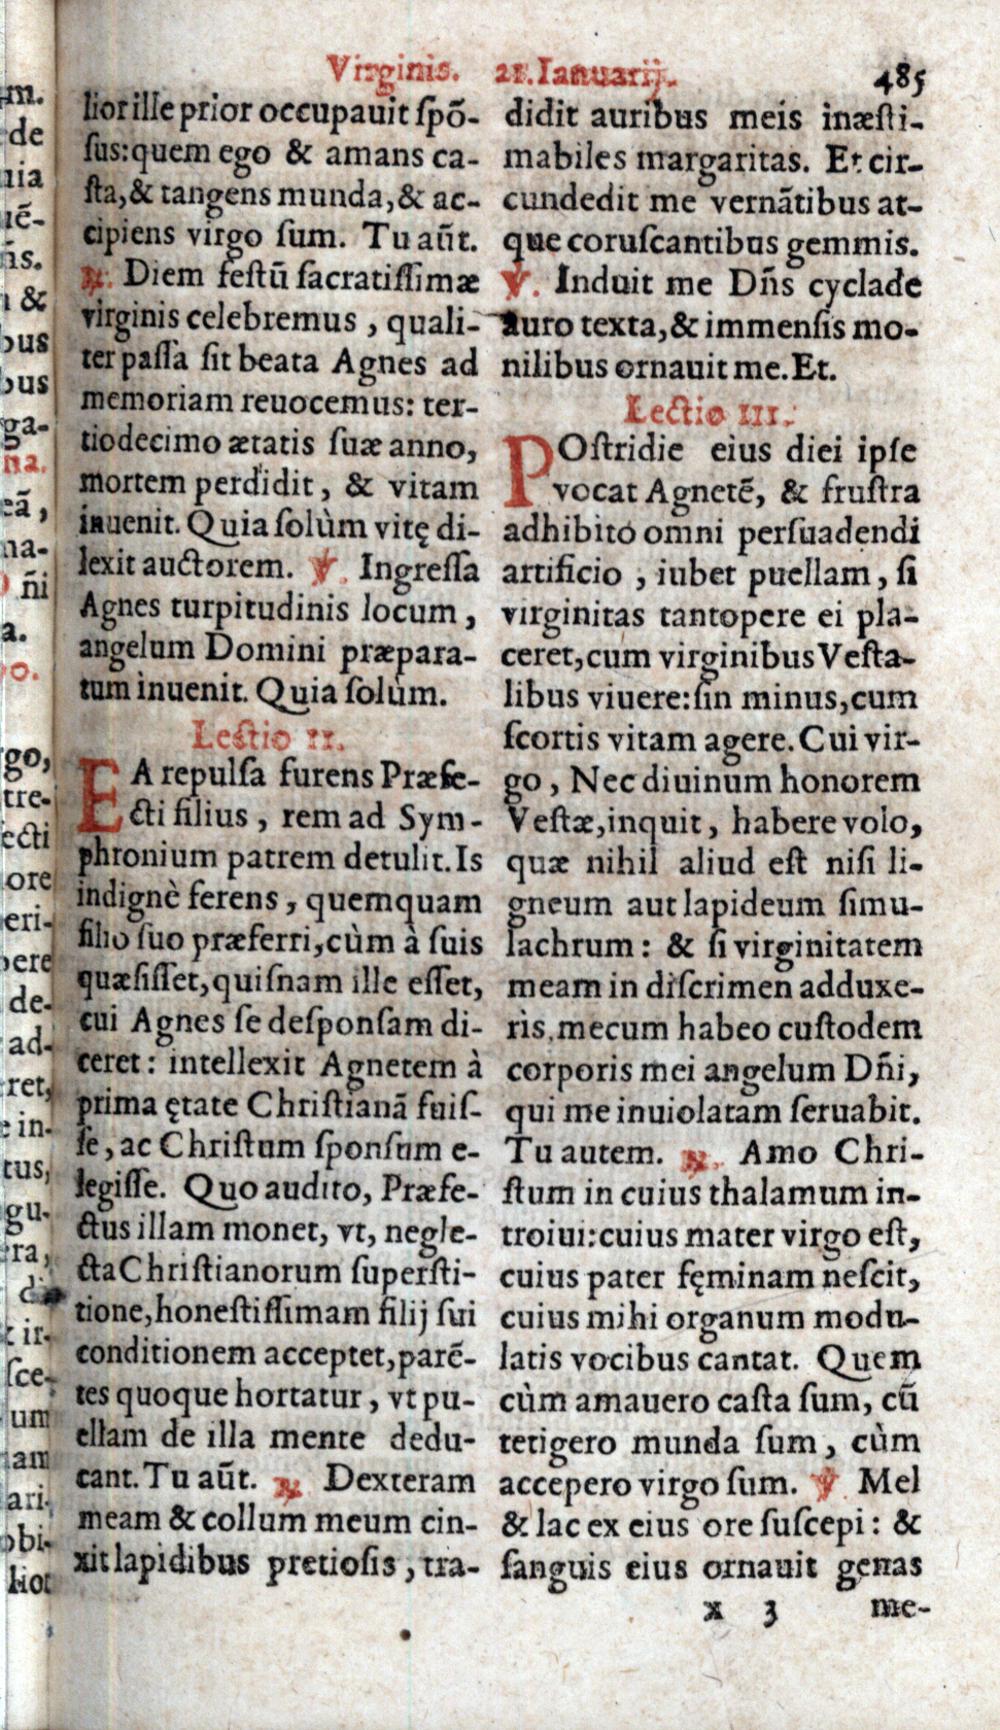 Virginis. 21. Ianuarij. 485
lior ille prior occupauit spõ-
sus: quem ego & amans ca-
sta, & tangens munda, & ac-
cipiens virgo sum. Tu aũt.
℟. Diem festũ sacratissimæ
virginis celebremus, quali-
ter passa sit beata Agnes ad
memoriam reuocemus: ter-
tiodecimo ætatis suæ anno,
mortem perdidit, & vitam
inuenit. Quia solùm vitę di-
lexit auctorem. ℣. Ingressa
Agnes turpitudinis locum,
angelum Domini præpara-
tum inuenit. Quia solùm.
Lectio II.
EA repulsa furens Præfe-
cti filius, rem ad Sym-
phronium patrem detulit. Is
indignè ferens, quemquam
filio suo præferri, cùm à suis
quæsisset, quisnam ille esset,
cui Agnes se desponsam di-
ceret: intellexit Agnetem à
prima ętate Christianã fuis-
se, ac Christum sponsum e-
legisse. Quo audito, Præfe-
ctus illam monet, vt, negle-
cta Christianorum supersti-
tione, honestissimam filij sui
conditionem acceptet, parẽ-
tes quoque hortatur, vt pu-
ellam de illa mente dedu-
cant. Tu aũt. ℟ Dexteram
meam & collum meum cin-
xit lapidibus pretiosis, tra-
didit auribus meis inæsti-
mabiles margaritas. Et cir-
cundedit me vernãtibus at-
que coruscantibus gemmis.
℣. Induit me Dñs cyclade
auro texta, & immensis mo-
nilibus ornauit me. Et.
Lectio III.
POstridie eius diei ipse
vocat Agnetẽ, & frustra
adhibito omni persuadendi
artificio, iubet puellam, si
virginitas tantopere ei pla-
ceret, cum virginibus Vesta-
libus viuere: sin minus, cum
scortis vitam agere. Cui vir-
go, Nec diuinum honorem
Vestæ, inquit, habere volo,
quæ nihil aliud est nisi li-
gneum aut lapideum simu-
lachrum: & si virginitatem
meam in discrimen adduxe-
ris, mecum habeo custodem
corporis mei angelum Dñi,
qui me inuiolatam seruabit.
Tu autem. ℟. Amo Chri-
stum in cuius thalamum in-
troiui: cuius mater virgo est,
cuius pater fęminam nescit,
cuius mihi organum modu-
latis vocibus cantat. Quem
cùm amauero casta sum, cũ
tetigero munda sum, cùm
accepero virgo sum. ℣. Mel
& lac ex eius ore suscepi: &
sanguis eius ornauit genas
x 3 me-